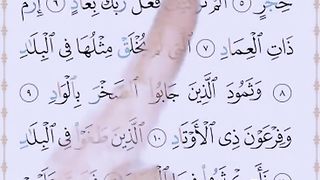 حِجْرٍ ٥ أَلَمْ تَرَ كَيْفَ فَعَلَ رَبُّكَ بِعَادٍ ٦ إِرَمَ
ذَاتِ ٱلْعِمَادِ ٧ ٱلَّتِى لَمْ يُخْلَقْ مِثْلُهَا فِى ٱلْبِلَٰدِ
٨ وَثَمُودَ ٱلَّذِينَ جَابُوا۟ ٱلصَّخْرَ بِٱلْوَادِ ٩
وَفِرْعَوْنَ ذِى ٱلْأَوْتَادِ ١٠ ٱلَّذِينَ طَغَوْا۟ فِى ٱلْبِلَٰدِ